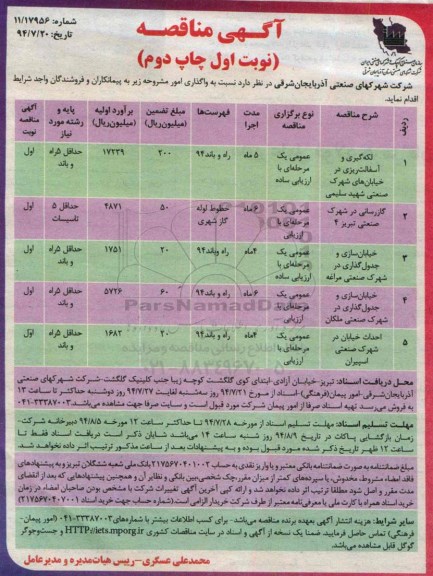 شماره: ۱۱/۱۷۹۵۶
تاریخ: ۹۴/۷/۲۰
آگهی مناقصه
(نوبت اول چاپ دوم)
شرکت شهرکهای صنعتی آذربایجان‌شرقی در نظر دارد نسبت به واگذاری امور مشروحه زیر به پیمانکاران و فروشندگان واجد شرایط
اقدام نماید.
ردیف شرح مناقصه نوع برگزاری مناقصه مدت اجرا فهرست‌ها مبلغ تضمین (میلیون‌ریال) برآورد اولیه (میلیون‌ریال) پایه و رشته مورد نیاز آگهی مناقصه نوبت
۱ لکه‌گیری و آسفالت‌ریزی در خیابان‌های شهرک صنعتی شهید سلیمی عمومی یک مرحله‌ای با ارزیابی ساده ۵ ماه راه و باند۹۴ ۳۰۰ ۱۷۲۳۹ حداقل ۵راه و باند اول
۲ گازرسانی در شهرک صنعتی تبریز ۴ عمومی یک مرحله‌ای با ارزیابی ۶ماه خطوط لوله گاز شهری ۵۰ ۴۸۷۱ حداقل ۵ تاسیسات اول
۳ خیابان‌سازی و جدول‌گذاری در شهرک صنعتی مراغه عمومی یک مرحله‌ای با ارزیابی ساده ۴ماه راه و باند۹۴ ۲۰ ۱۷۵۱ حداقل ۵راه و باند اول
۴ خیابان‌سازی و جدول‌گذاری در شهرک صنعتی ملکان عمومی یک مرحله‌ای با ارزیابی ۶ماه راه وباند۹۴ ۶۰ ۵۷۲۶ حداقل ۵راه و باند اول
۵ احداث خیابان در شهرک صنعتی اسپیران عمومی یک مرحله‌ای با ارزیابی ۴ماه راه وباند۹۴ ۲۰ ۱۶۸۲ حداقل ۵راه و باند اول
ParsNamadData
۰۲۱-۸۸۳۴۹۶۷۰
محل دریافت اسناد: تبریز-خیابان آزادی-ابتدای کوی گلگشت کوچه زیبا جنب کلینیک گلگشت-شرکت شهرکهای صنعتی
آذربایجان‌شرقی-امور پیمان(فرهنگی)- اسناد از مورخ ۹۴/۷/۲۱ روز سه‌شنبه لغایت ۹۴/۷/۲۷ روز دوشنبه حداکثر تا ساعت ۱۳
به فروش می‌رسد تهیه اسناد صرفا از امور پیمان شرکت مورد قبول است و سایت صرفا جهت مشاهده می‌باشد.۳۳۳۸۷۰۰۳-۰۴۱
مهلت تسلیم اسناد: مهلت تسلیم اسناد از مورخه ۹۴/۷/۲۸ تا حداکثر ساعت ۱۲ مورخه ۹۴/۸/۵ دبیرخانه شرکت-
زمان بازگشایی پاکات در تاریخ ۹۴/۸/۹ روز شنبه ساعت ۱۴ می‌باشد شایان ذکر است دریافت اسناد فقط تا
ساعت ۱۲ ظهر تاریخ ذکر شده مورد قبول بوده و به پیشنهادات بعد از ساعت مذکور ترتیب اثر داده نخواهد شد.
مبلغ ضمانتنامه به صورت ضمانتنامه بانکی معتبر و یا واریز نقدی به حساب ۲۱۷۵۶۷۰۴۰۱۰۰۲ بانک ملی شعبه ششگلان تبریز و به پیشنهادهای
فاقد امضاء مشروط، مخدوش، یا سپرده‌های کمتر از میزان مقرر،چک شخصی‌بین بانکی و نظایر آن و همچنین پیشنهادهایی که بعد از انقضای
مدت مقرر و اصل شود مطلقا ترتیب اثر داده نخواهد شد و ارائه کپی آخرین آگهی تغییرات شرکت با مشخص بودن صاحبان امضاء در زمان
خرید اسناد همراه با کارت ملی یا معرفی‌نامه معتبر از طرف شرکت خریدار الزامی است.(شماره حساب جهت خرید اسناد ۲۱۷۵۶۷۰۴۰۷۰۰۱)
سایر شرایط: هزینه انتشار آگهی بعهده برنده مناقصه می‌باشد- برای کسب اطلاعات بیشتر با شماره‌های ۳۳۳۸۷۰۰۳-۰۴۱ (امور پیمان-
فرهنگی) تماس حاصل فرمایید. ضمنا یک نسخه از آگهی و اسناد در سایت مناقصات کشوری HTTP://iets.mporg.ir و جست‌وجوگر
گوگل قابل مشاهده می‌باشد.
محمدعلی عسکری-رییس هیات‌مدیره و مدیرعامل